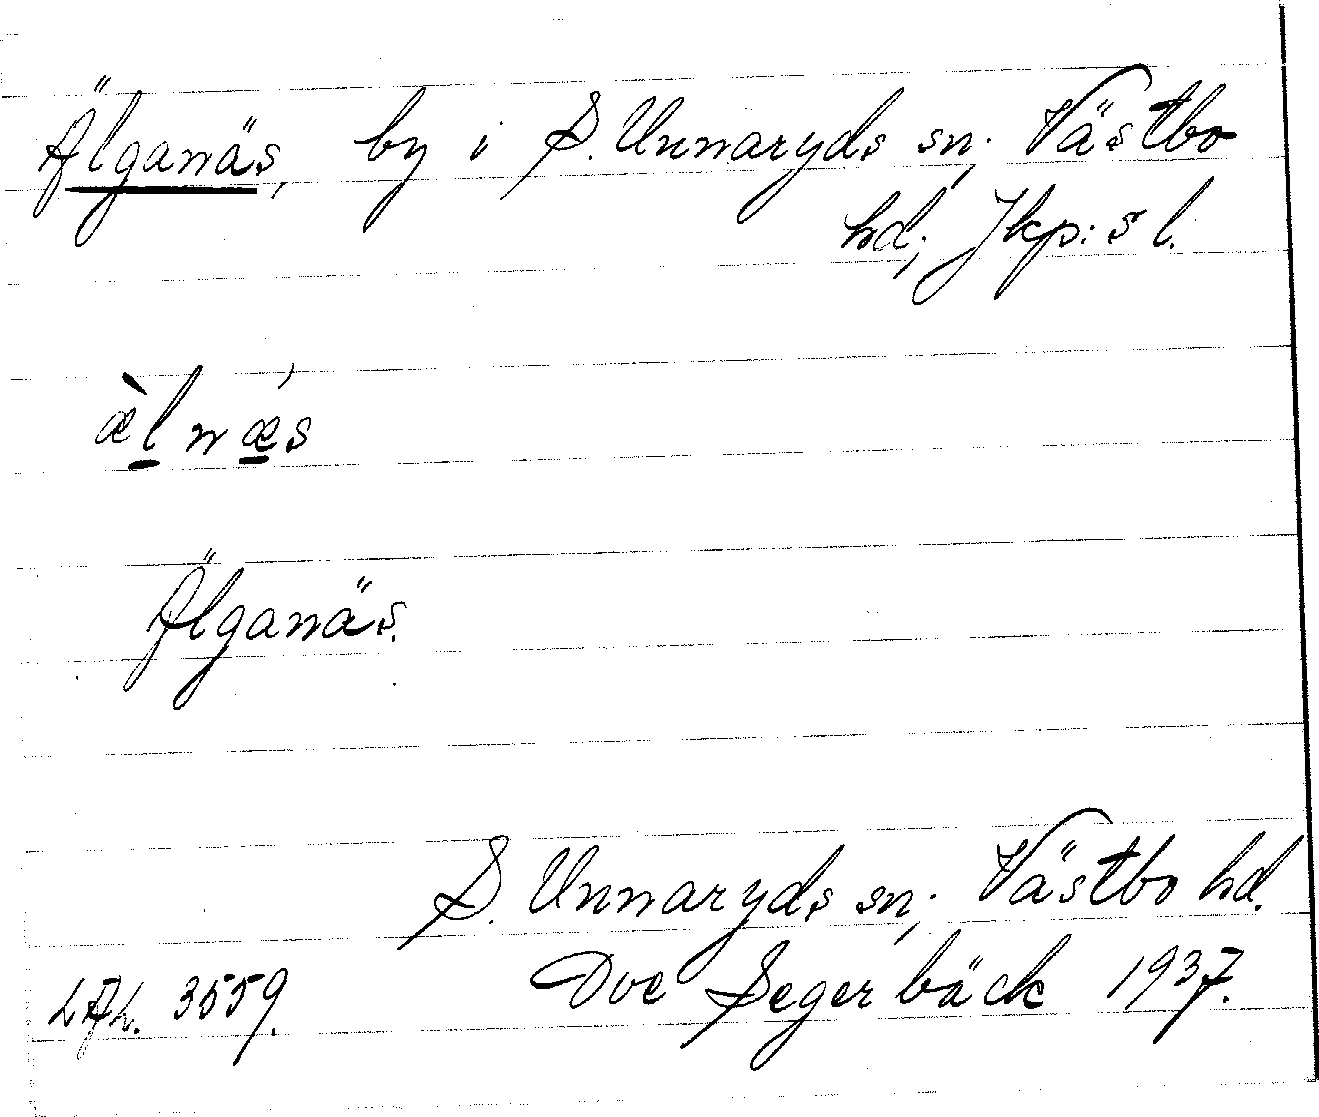 Älganäs, by i S. Unnaryds sn, Västbo
hd, Jkp:s l.
æ̀l̲nǽ̲s
Älganäs.
S. Unnaryds sn, Västbo hd.
LAL. 3559. Ove Segerbäck 1937.